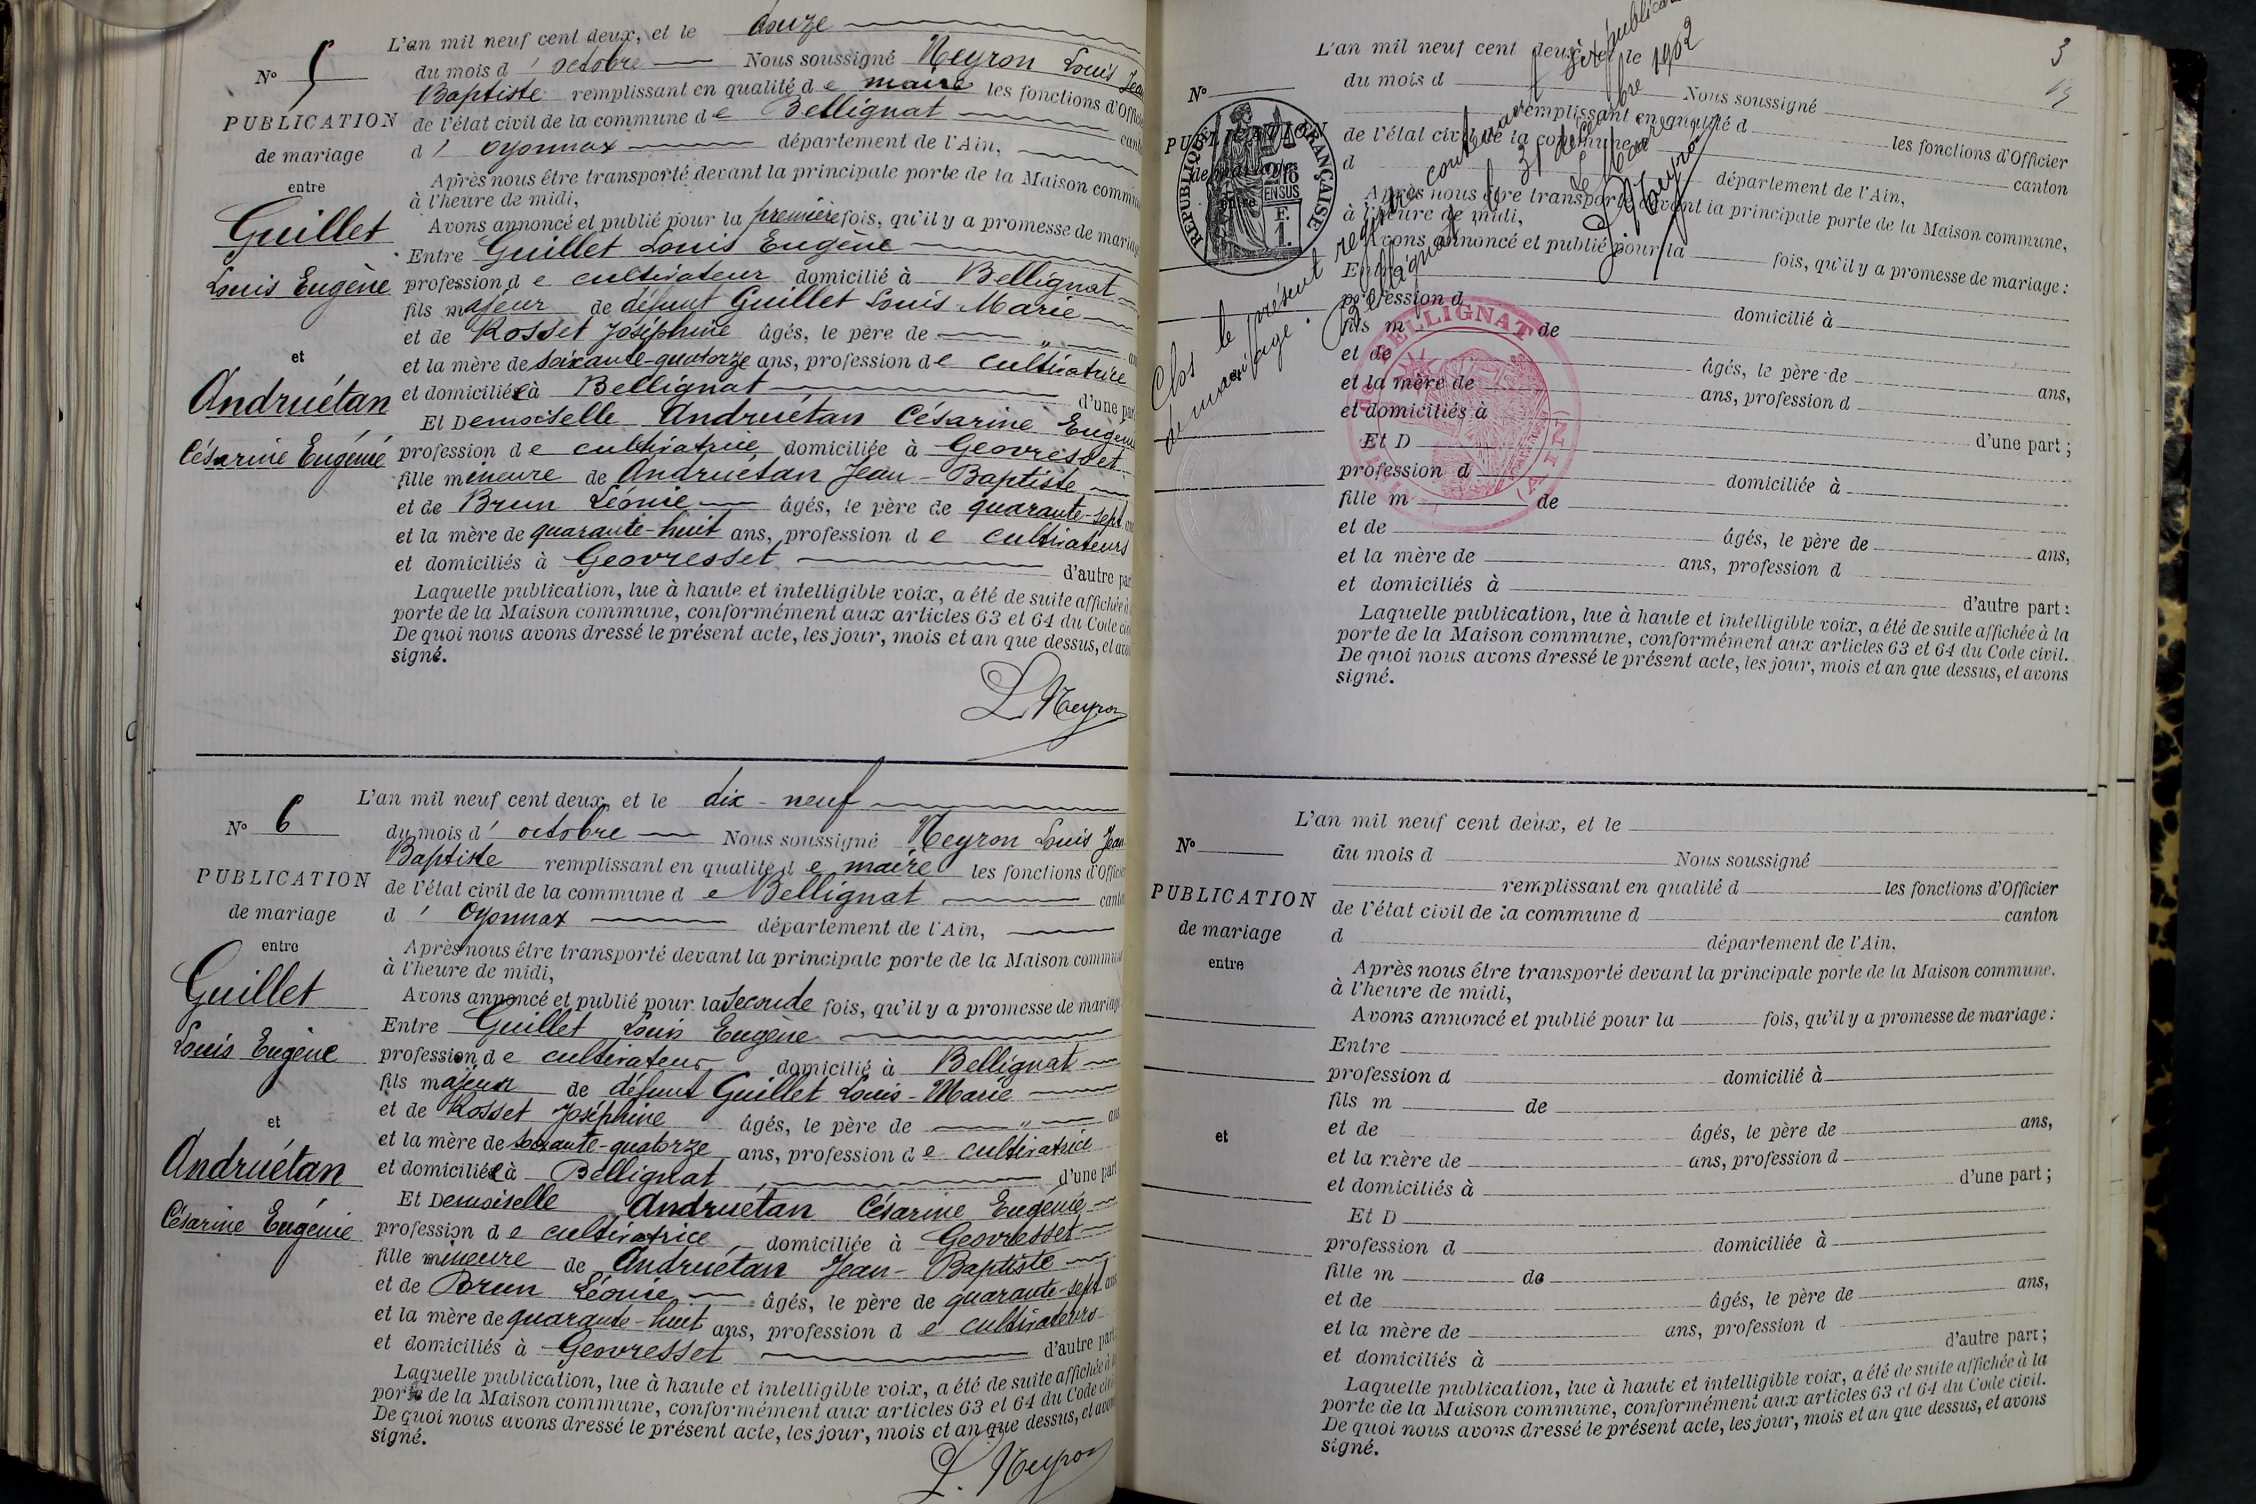 N° 5
PUBLICATION
de mariage
entre
Guillet
Louis Eugène
et
Andruétan
Césarine Eugénie
L'an mil neuf cent deux, et le douze
du mois d' octobre Nous soussigné Neyron Louis Jean
Baptiste remplissant en qualité de maire les fonctions d'Officier
de l'état civil de la commune de Bellignat canton
d' Oyonnax département de l'Ain,
Après nous être transporté devant la principale porte de la Maison commune
à l'heure de midi,
Avons annoncé et publié pour la première fois, qu'il y a promesse de mariage
Entre Guillet Louis Eugène
profession de cultivateur domicilié à Bellignat
fils majeur de défunt Guillet Louis Marie
et de Rosset Joséphine âgés, le père de " ans
et la mère de soixante-quatorze ans, profession de cultivatrice
et domiciliée à Bellignat d'une part
Et Demoiselle Andruétan Césarine Eugénie
profession de cultivatrice domiciliée à Geovresset
fille mineure de Andruétan Jean-Baptiste
et de Brun Léonie âgés, le père de quarante-sept ans
et la mère de quarante-huit ans, profession de cultivateurs
et domiciliés à Geovresset d'autre part
Laquelle publication, lue à haute et intelligible voix, a été de suite affichée à la
porte de la Maison commune, conformément aux articles 63 et 64 du Code civil
De quoi nous avons dressé le présent acte, les jour, mois et an que dessus, et avons
signé.
L Neyron
N° 6
PUBLICATION
de mariage
entre
Guillet
Louis Eugène
et
Andruétan
Césarine Eugénie
L'an mil neuf cent deux, et le dix-neuf
du mois d' octobre Nous soussigné Neyron Louis Jean
Baptiste remplissant en qualité de maire les fonctions d'Officier
de l'état civil de la commune de Bellignat canton
d' Oyonnax département de l'Ain,
Après nous être transporté devant la principale porte de la Maison commune
à l'heure de midi,
Avons annoncé et publié pour la seconde fois, qu'il y a promesse de mariage
Entre Guillet Louis Eugène
profession de cultivateur domicilié à Bellignat
fils majeur de défunt Guillet Louis-Marie
et de Rosset Joséphine âgés, le père de " ans
et la mère de soixante-quatorze ans, profession de cultivatrice
et domiciliée à Bellignat d'une part
Et Demoiselle Andruétan Césarine Eugénie
profession de cultivatrice domiciliée à Geovresset
fille mineure de Andruétan Jean-Baptiste
et de Brun Léonie âgés, le père de quarante-sept ans
et la mère de quarante-huit ans, profession de cultivateurs
et domiciliés à Geovresset d'autre part
Laquelle publication, lue à haute et intelligible voix, a été de suite affichée à la
porte de la Maison commune, conformément aux articles 63 et 64 du Code civil
De quoi nous avons dressé le présent acte, les jour, mois et an que dessus, et avons
signé.
L. Neyron
3
Clos le présent registre contenant six publications
de mariage. Bellignat le 31 décembre 1902
Le Maire
L Neyron
RÉPUBLIQUE FRANÇAISE
BELLIGNAT
(AIN)
N°
PUBLICATION
de mariage
entre
L'an mil neuf cent deux, et le
du mois d Nous soussigné
remplissant en qualité d les fonctions d'Officier
de l'état civil de la commune d canton
d département de l'Ain,
Après nous être transporté devant la principale porte de la Maison commune,
à l'heure de midi,
Avons annoncé et publié pour la fois, qu'il y a promesse de mariage :
Entre
profession d domicilié à
fils m de
et de âgés, le père de ans,
et la mère de ans, profession d
et domiciliés à d'une part ;
Et D
profession d domiciliée à
fille m de
et de âgés, le père de ans,
et la mère de ans, profession d
et domiciliés à d'autre part :
Laquelle publication, lue à haute et intelligible voix, a été de suite affichée à la
porte de la Maison commune, conformément aux articles 63 et 64 du Code civil.
De quoi nous avons dressé le présent acte, les jour, mois et an que dessus, et avons
signé.
N°
PUBLICATION
de mariage
entre
et
L'an mil neuf cent deux, et le
du mois d Nous soussigné
remplissant en qualité d les fonctions d'Officier
de l'état civil de la commune d canton
d département de l'Ain,
Après nous être transporté devant la principale porte de la Maison commune,
à l'heure de midi,
Avons annoncé et publié pour la fois, qu'il y a promesse de mariage :
Entre
profession d domicilié à
fils m de
et de âgés, le père de ans,
et la mère de ans, profession d
et domiciliés à d'une part ;
Et D
profession d domiciliée à
fille m de
et de âgés, le père de ans,
et la mère de ans, profession d
et domiciliés à d'autre part ;
Laquelle publication, lue à haute et intelligible voix, a été de suite affichée à la
porte de la Maison commune, conformément aux articles 63 et 64 du Code civil.
De quoi nous avons dressé le présent acte, les jour, mois et an que dessus, et avons
signé.